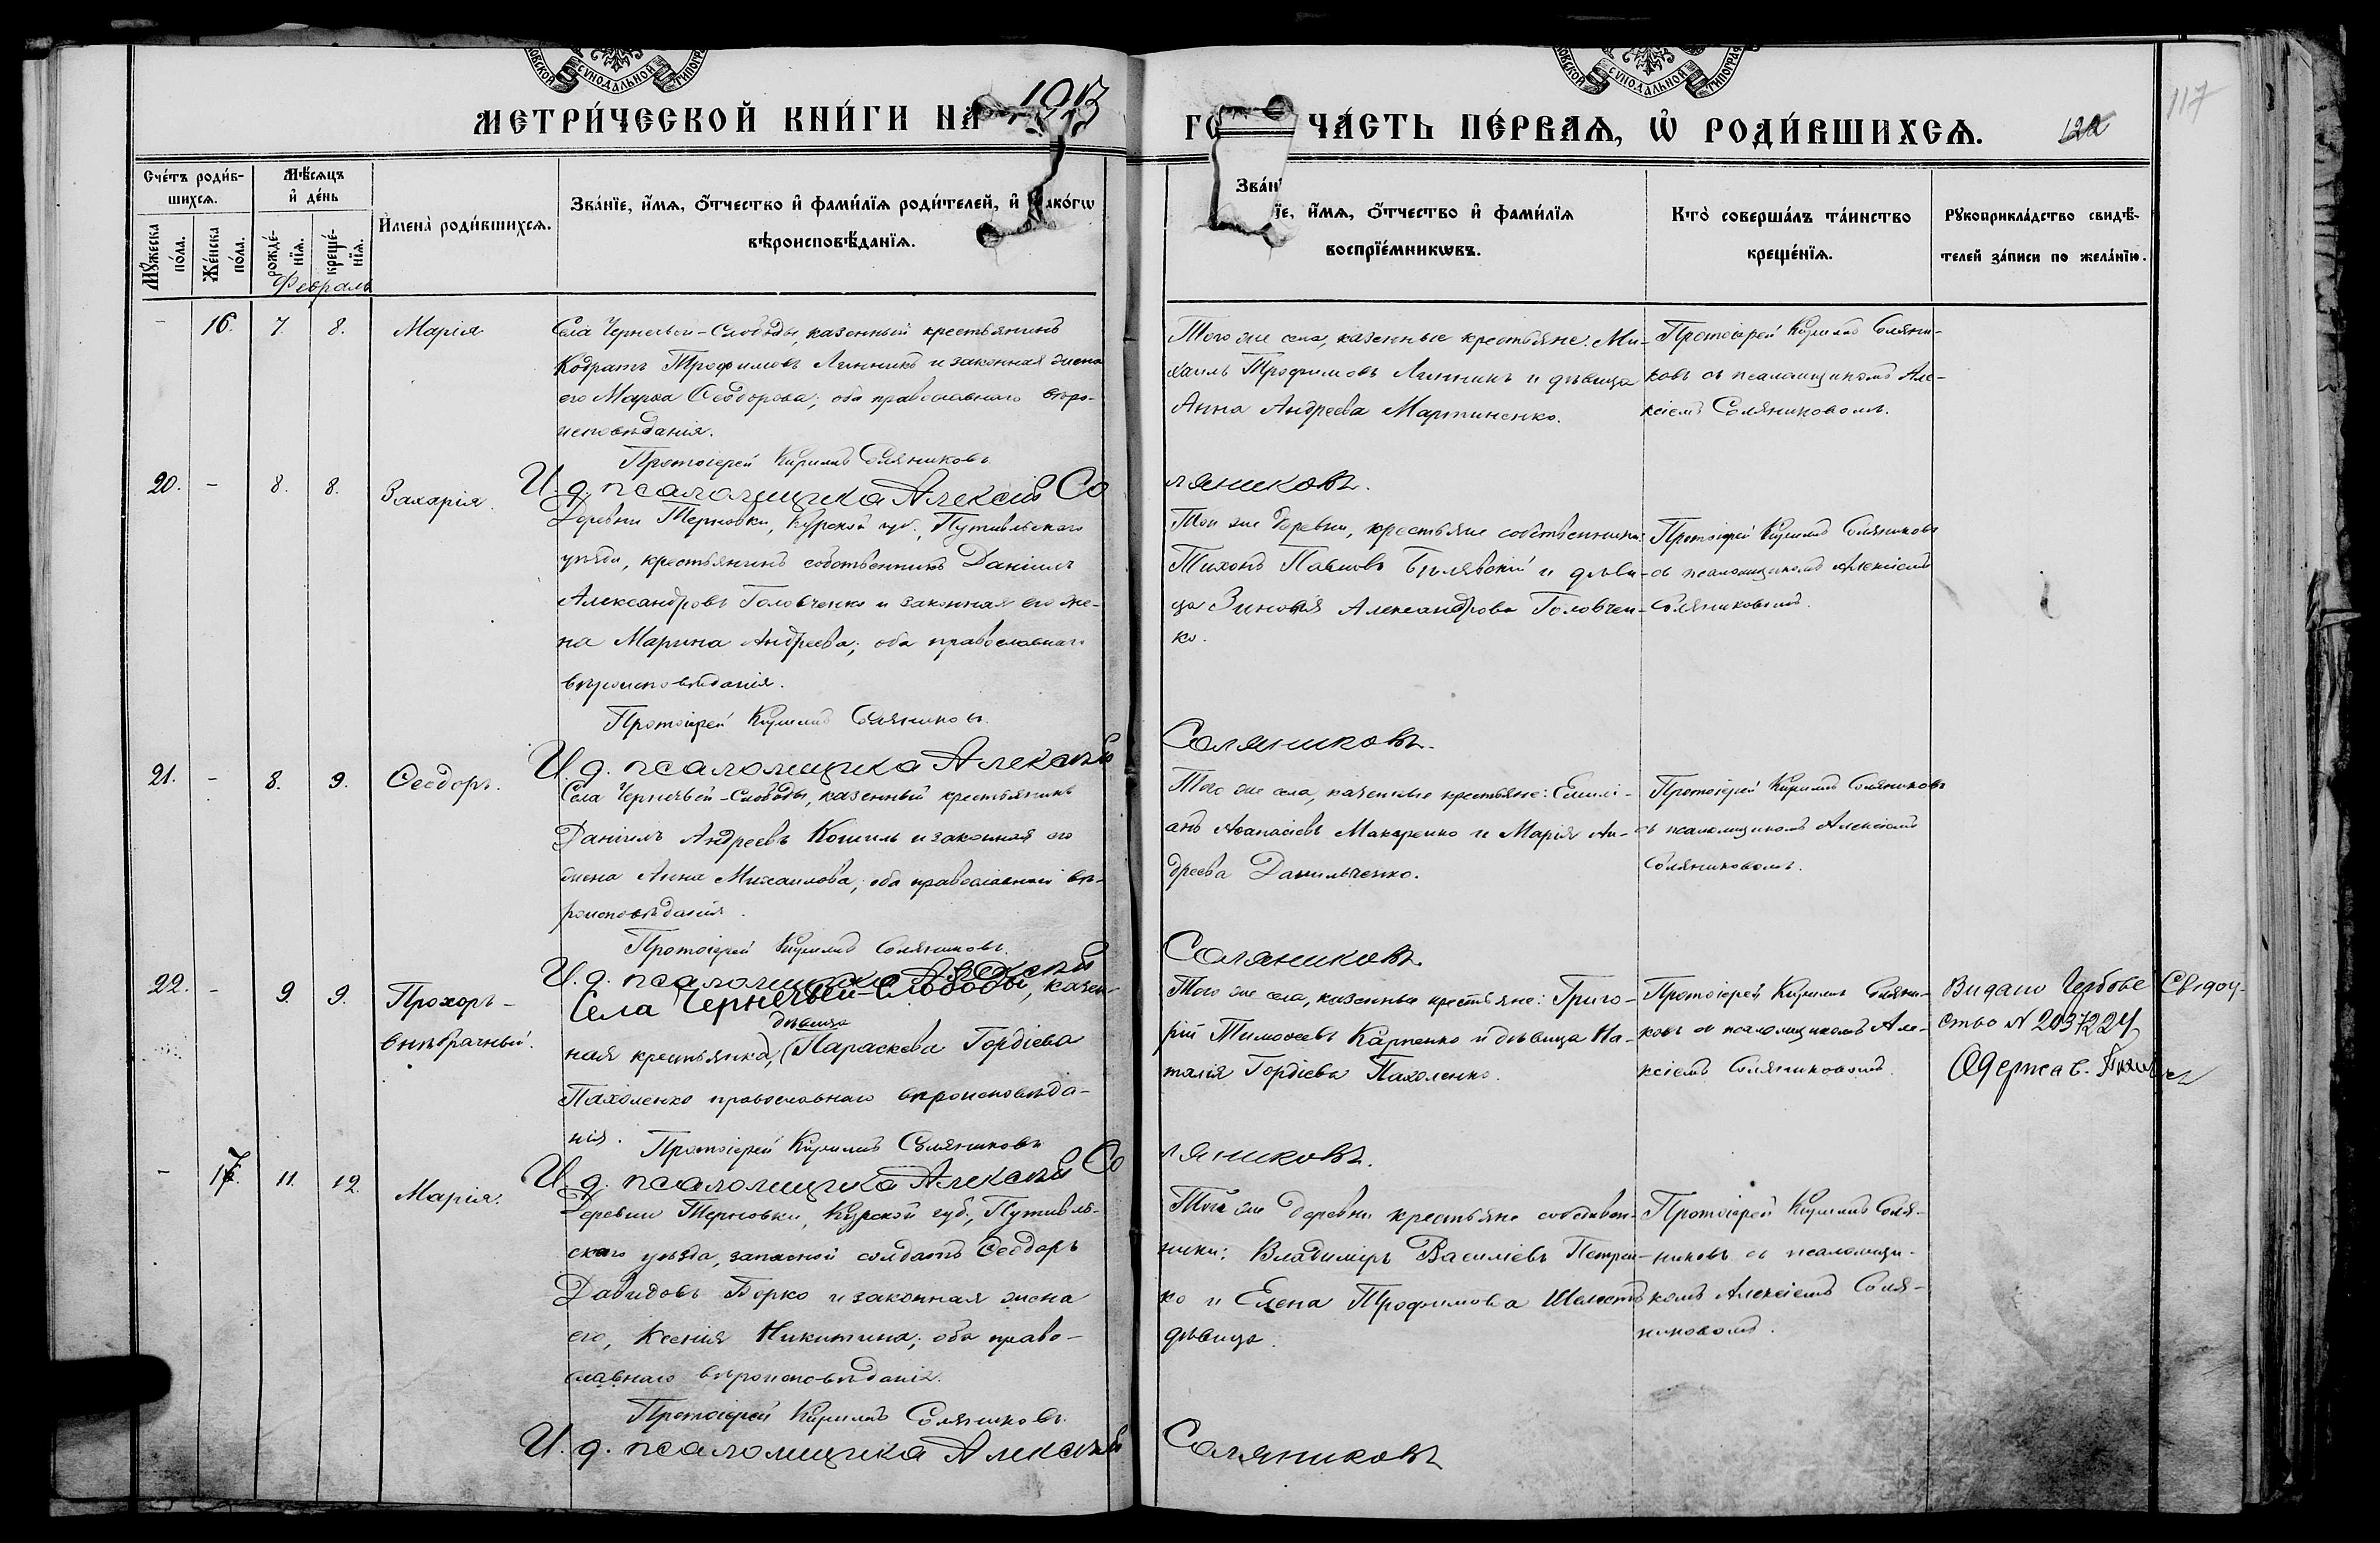 МОСКОВСКОЙ СУНОДАЛЬНОЙ ТИПОГРАФ
МОСКОВСКОЙ СУНОДАЛЬНОЙ ТИПОГРАФ
МЕТРИ́ЧЕСКОЙ КНИ́ГИ НА 1913
ГО ЧА́СТЬ ПЕ́РВАѦ, Ѡ҆ РОДИ́ВШИХСѦ.
117
Сче́тъ роди́в-
шихсѧ.
Мѣ́сѧцъ
и҆ де́нь
Мꙋ́жеска
по́ла.
Же́нска
по́ла.
рожде́-
нїѧ.
креще́-
нїѧ.
Февраль
И҆мена̀ роди́вшихсѧ.
Зва́нїе, и҆́мѧ, ѻ҆́тчество и҆ фами́лїѧ роди́телей, и҆ како́гѡ
вѣроисповѣ́данїѧ.
Зва́нї
їе, и҆́мѧ, ѻ҆́тчество и҆ фами́лїѧ
воспрїе́мникѡвъ.
Кто̀ соверша́лъ та́инство
креще́нїѧ.
Рꙋкоприкла́дство свидѣ́-
телей за́писи по жела́нїю.
– 16. 7. 8. Марія.
Села Чернечьей-Слободы, казенный крестьянинъ
Кодратъ Трофимовъ Линникъ и законная жена
его Марѳа Ѳеодорова; оба православнаго вѣро-
исповѣданія.
Протоіерей Кириллъ Соляниковъ
И. д. псаломщика Алексій Со
Того же села, казенные крестьяне: Ми-
хаилъ Трофимовъ Линникъ и дѣвица
Анна Андреева Мартиненко.
ляниковъ.
Протоіерей Кириллъ Соляни-
ковъ съ псаломщикомъ Але-
ксіемъ Соляниковомъ.
20. – 8. 8. Захарія.
Деревни Терновки, Курской губ., Путивльскаго
уѣзда, крестьянинъ собственникъ Даніилъ
Александровъ Головченко и законная его же-
на Марина Андреева; оба православнаго
вѣроисповѣданія.
Протоіерей Кириллъ Соляниковъ.
И. д. псаломщика Алексѣй
Той же деревни, крестьяне собственники:
Тихонъ Павловъ Бѣлявскій и дѣви-
ца Зиновія Александрова Головчен-
ко.
Соляниковъ.
Протоіерей Кириллъ Соляниковъ
съ псаломщикомъ Алексіемъ
Соляниковымъ.
21. – 8. 9. Ѳеодоръ.
Села Чернечьей-Слободы, казенный крестьянинъ
Даніилъ Андреевъ Кошиль и законная его
жена Анна Михаилова; оба православнаго вѣ-
роисповѣданія.
Протоіерей Кириллъ Соляниковъ.
И. д. псаломщика Алексѣй
Того же села, казенные крестьяне: Емилі-
анъ Аѳанасіевъ Макаренко и Марія Ан-
дреева Данильченко.
Соляниковъ.
Протоіерей Кириллъ Соляниковъ
съ псаломщикомъ Алексіемъ
Соляниковомъ.
22. – 9. 9. Прохоръ –
внѣбрачный.
Села Чернечьей-Слободы, казен-
дѣвица
ная крестьянка, Параскева Гордіева
Пахоленко православнаго вѣроисповѣда-
нія. Протоіерей Кириллъ Соляниковъ
И. д. псаломщика Алексѣй Со
Того же села, казенные крестьяне: Григо-
рій Тимоѳеевъ Карпенко и дѣвица На-
талія Гордіева Пахоленко.
ляниковъ.
Протоіерей Кириллъ Соляни-
ковъ съ псаломщикомъ Але-
ксіемъ Соляниковомъ.
Видано Свідоц-
ство №
Одержав.
– 17. 11. 12. Марія.
Деревни Терновки, Курской губ., Путивль-
скаго уѣзда, запасной солдатъ Ѳеодоръ
Давидовъ Борко и законная жена
его, Ксенія Никитина; оба право-
славнаго вѣроисповѣданія.
Протоіерей Кириллъ Соляниковъ.
И. д. псаломщика Алексѣй
Той же деревни крестьяне собствен-
ники: Владиміръ Василіевъ Петрен-
ко и Елена Трофимова Шелестъ
дѣвица.
Соляниковъ
Протоіерей Кириллъ Соля-
никовъ съ псаломщи-
комъ Алексіемъ Соля-
никовомъ.